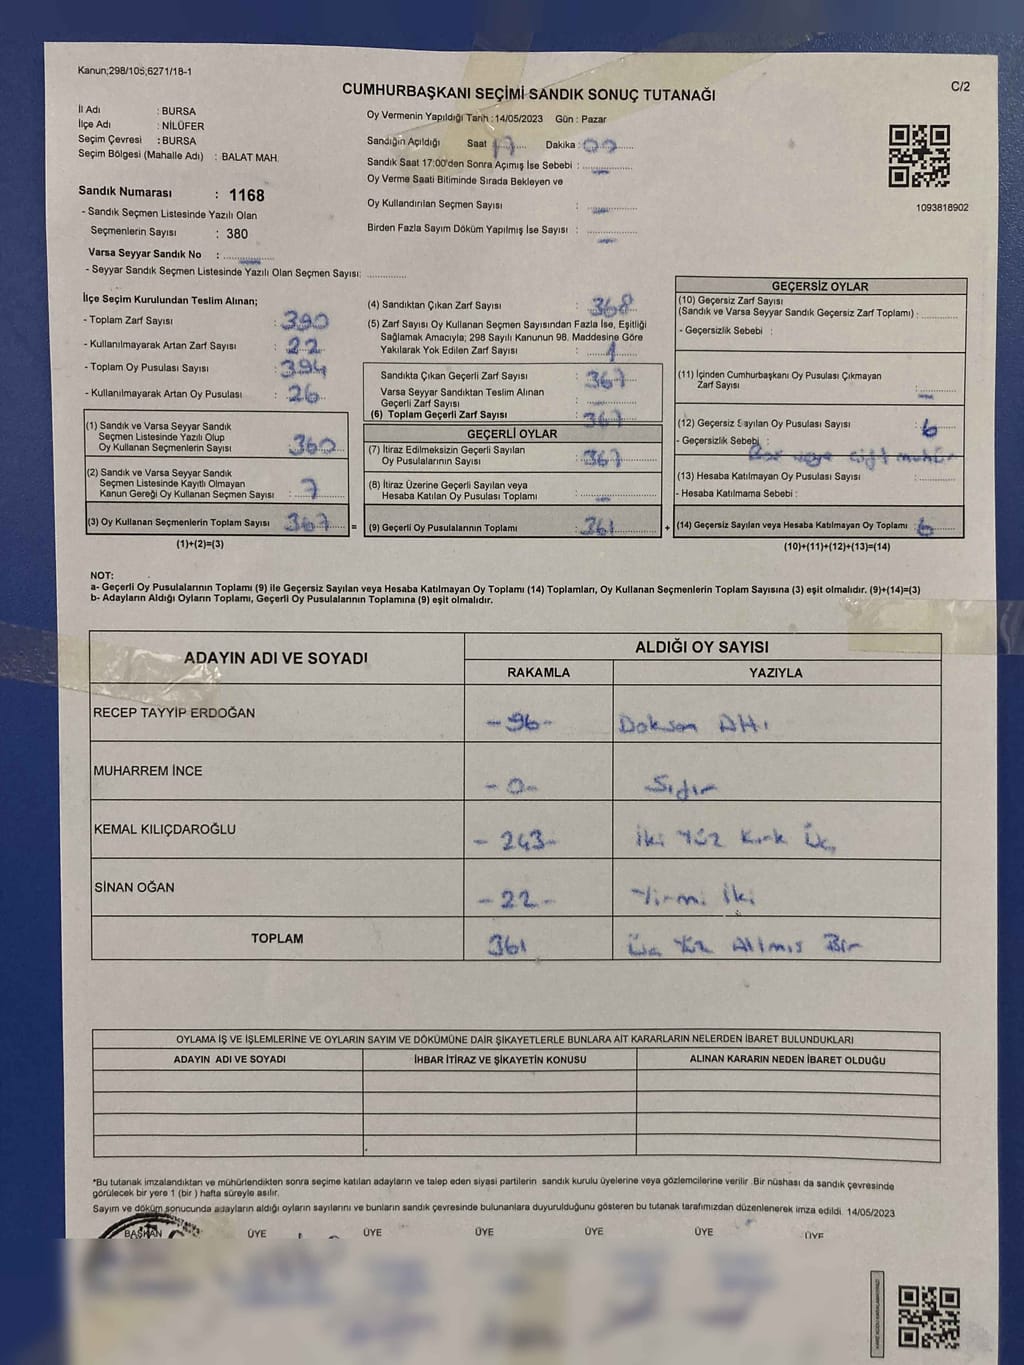 Kanun;298/105,6271/18-1
C/2
CUMHURBAŞKANI SEÇİMİ SANDIK SONUÇ TUTANAĞI
İl Adı : BURSA
İlçe Adı : NİLÜFER
Seçim Çevresi : BURSA
Seçim Bölgesi (Mahalle Adı) : BALAT MAH.
Sandık Numarası : 1168
- Sandık Seçmen Listesinde Yazılı Olan
Seçmenlerin Sayısı : 380
Varsa Seyyar Sandık No :
- Seyyar Sandık Seçmen Listesinde Yazılı Olan Seçmen Sayısı:
Oy Vermenin Yapıldığı Tarih :14/05/2023 Gün : Pazar
Sandığın Açıldığı Saat 17 Dakika : 00
Sandık Saat 17:00'den Sonra Açımış İse Sebebi :
Oy Verme Saati Bitiminde Sırada Bekleyen ve
Oy Kullandırılan Seçmen Sayısı :
Birden Fazla Sayım Döküm Yapılmış İse Sayısı :
1093818902
İlçe Seçim Kurulundan Teslim Alınan;
- Toplam Zarf Sayısı : 390
- Kullanılmayarak Artan Zarf Sayısı : 22
- Toplam Oy Pusulası Sayısı : 394
- Kullanılmayarak Artan Oy Pusulası : 26
(1) Sandık ve Varsa Seyyar Sandık
Seçmen Listesinde Yazılı Olup
Oy Kullanan Seçmenlerin Sayısı : 360
(2) Sandık ve Varsa Seyyar Sandık
Seçmen Listesinde Kayıtlı Olmayan
Kanun Gereği Oy Kullanan Seçmen Sayısı : 7
(3) Oy Kullanan Seçmenlerin Toplam Sayısı : 367 =
(1)+(2)=(3)
(4) Sandıktan Çıkan Zarf Sayısı : 368
(5) Zarf Sayısı Oy Kullanan Seçmen Sayısından Fazla İse, Eşitliği
Sağlamak Amacıyla; 298 Sayılı Kanunun 98. Maddesine Göre
Yakılarak Yok Edilen Zarf Sayısı : 1
Sandıkta Çıkan Geçerli Zarf Sayısı : 367
Varsa Seyyar Sandıktan Teslim Alınan
Geçerli Zarf Sayısı :
(6) Toplam Geçerli Zarf Sayısı : 367
GEÇERLİ OYLAR
(7) İtiraz Edilmeksizin Geçerli Sayılan
Oy Pusulalarının Sayısı : 367
(8) İtiraz Üzerine Geçerli Sayılan veya
Hesaba Katılan Oy Pusulası Toplamı :
(9) Geçerli Oy Pusulalarının Toplamı : 361 +
GEÇERSİZ OYLAR
(10) Geçersiz Zarf Sayısı
(Sandık ve Varsa Seyyar Sandık Geçersiz Zarf Toplamı) :
- Geçersizlik Sebebi :
(11) İçinden Cumhurbaşkanı Oy Pusulası Çıkmayan
Zarf Sayısı :
(12) Geçersiz Sayılan Oy Pusulası Sayısı : 6
- Geçersizlik Sebebi : Boş veya çift mühür
(13) Hesaba Katılmayan Oy Pusulası Sayısı :
- Hesaba Katılmama Sebebi :
(14) Geçersiz Sayılan veya Hesaba Katılmayan Oy Toplamı : 6
(10)+(11)+(12)+(13)=(14)
NOT:
a- Geçerli Oy Pusulalarının Toplamı (9) ile Geçersiz Sayılan veya Hesaba Katılmayan Oy Toplamı (14) Toplamları, Oy Kullanan Seçmenlerin Toplam Sayısına (3) eşit olmalıdır. (9)+(14)=(3)
b- Adayların Aldığı Oyların Toplamı, Geçerli Oy Pusulalarının Toplamına (9) eşit olmalıdır.
ADAYIN ADI VE SOYADI
ALDIĞI OY SAYISI
RAKAMLA YAZIYLA
RECEP TAYYİP ERDOĞAN -96- Doksan Altı
MUHARREM İNCE -0- Sıfır
KEMAL KILIÇDAROĞLU -243- İki Yüz Kırk Üç
SİNAN OĞAN -22- Yirmi İki
TOPLAM 361 Üç Yüz Altmış Bir
OYLAMA İŞ VE İŞLEMLERİNE VE OYLARIN SAYIM VE DÖKÜMÜNE DAİR ŞİKAYETLERLE BUNLARA AİT KARARLARIN NELERDEN İBARET BULUNDUKLARI
ADAYIN ADI VE SOYADI İHBAR İTİRAZ VE ŞİKAYETİN KONUSU ALINAN KARARIN NEDEN İBARET OLDUĞU
*Bu tutanak imzalandıktan ve mühürlendikten sonra seçime katılan adayların ve talep eden siyasi partilerin sandık kurulu üyelerine veya gözlemcilerine verilir .Bir nüshası da sandık çevresinde
görülecek bir yere 1 (bir ) hafta süreyle asılır.
Sayım ve döküm sonucunda adayların aldığı oyların sayılarını ve bunların sandık çevresinde bulunanlara duyurulduğunu gösteren bu tutanak tarafımızdan düzenlenerek imza edildi. 14/05/2023
BAŞKAN ÜYE ÜYE ÜYE ÜYE ÜYE ÜYE